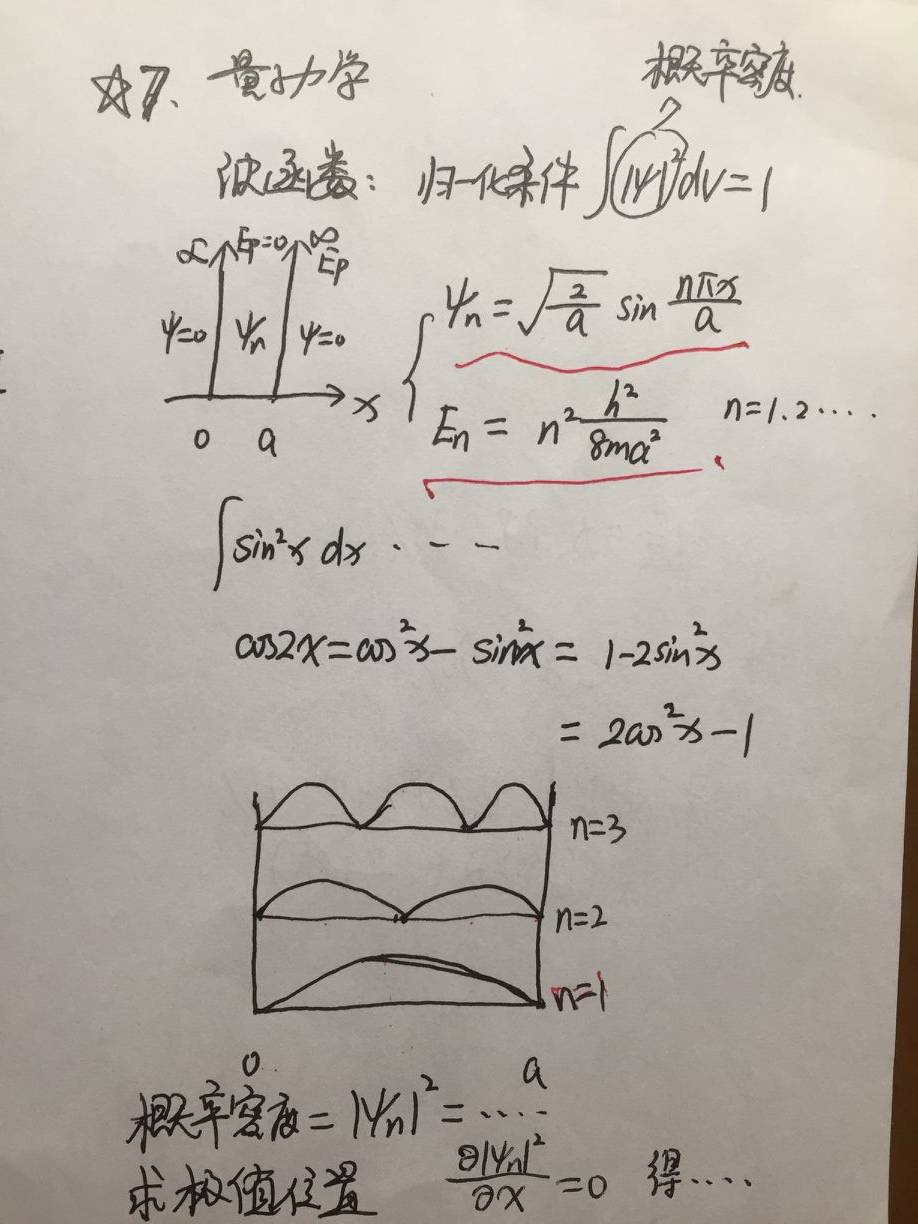 ☆7、量子力学
概率密度.
波函数: 归一化条件 ∫|ψ|²dV=1
∞ Ep=0 ∞ Ep
ψ=0 ψn ψ=0
0 a x
ψn = √(2/a) sin nπx/a
En = n² h²/8ma² n=1.2....
∫sin²x dx . - - -
cos2x=cos²x- sin²x = 1-2sin²x
= 2cos²x-1
n=3
n=2
n=1
0 a
概率密度=|ψn|²=.....
求极值位置 ∂|ψn|²/∂x =0 得....